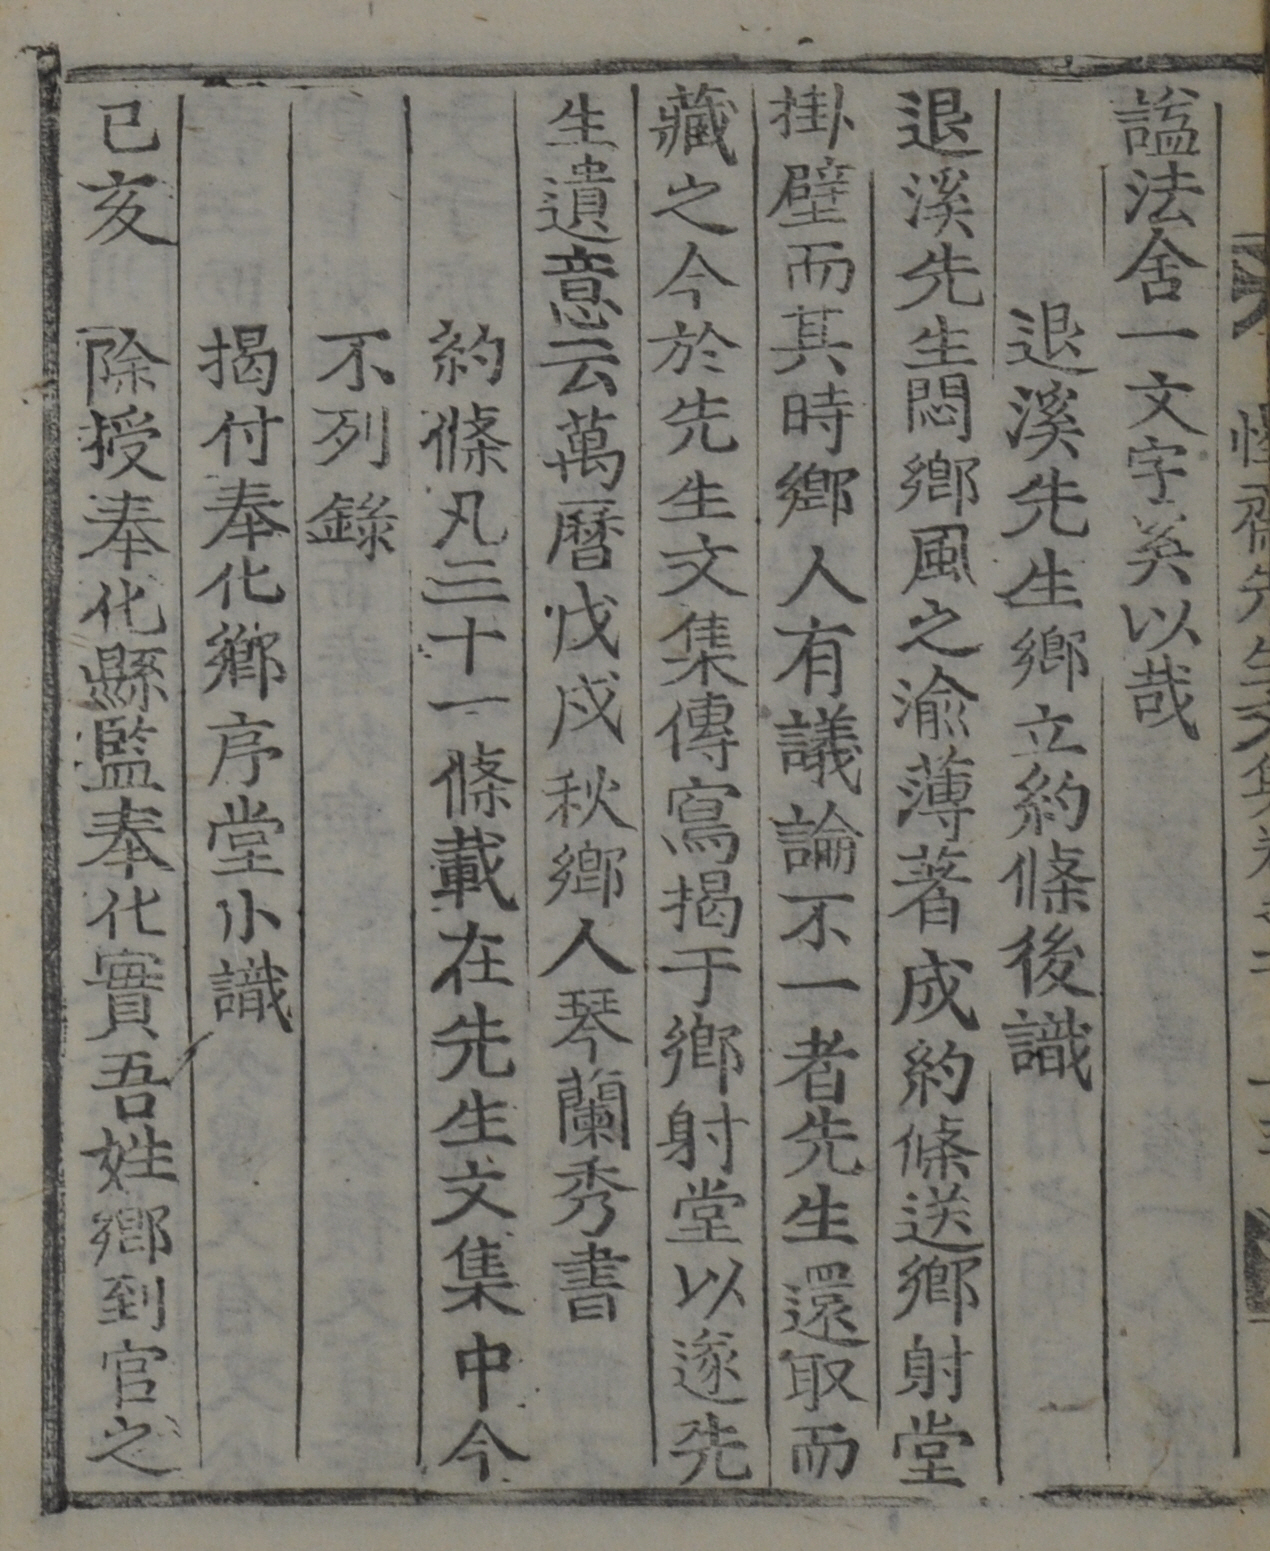 惺齋先生文集卷之
諡法舍一文字奚以哉
退溪先生鄉立約條後識
退溪先生悶鄉風之渝薄著成約條送鄉射堂
掛壁而其時鄉人有議論不一者先生還取而
藏之今於先生文集傳寫揭于鄉射堂以遂先
生遺意云萬曆戊戌秋鄉人琴蘭秀書
約條凡三十一條載在先生文集中今
不列錄
揭付奉化鄉序堂小識
已亥 除授奉化縣監奉化實吾姓鄉到官之